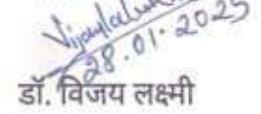 Vijaylakshmi
28.01.2025
डॉ. विजय लक्ष्मी